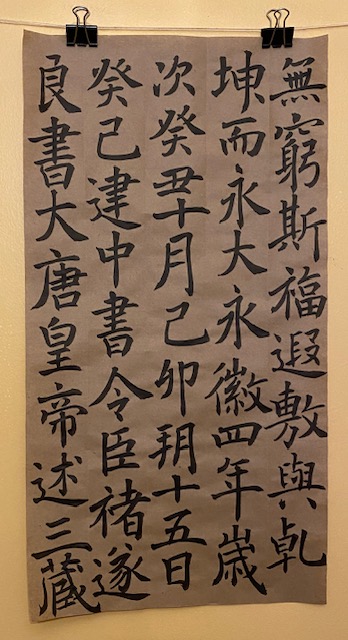 無窮斯福遐敷與乹
坤而永大永徽四年歲
次癸丑十月己卯朔十五日
癸巳建中書令臣褚遂
良書大唐皇帝述三藏